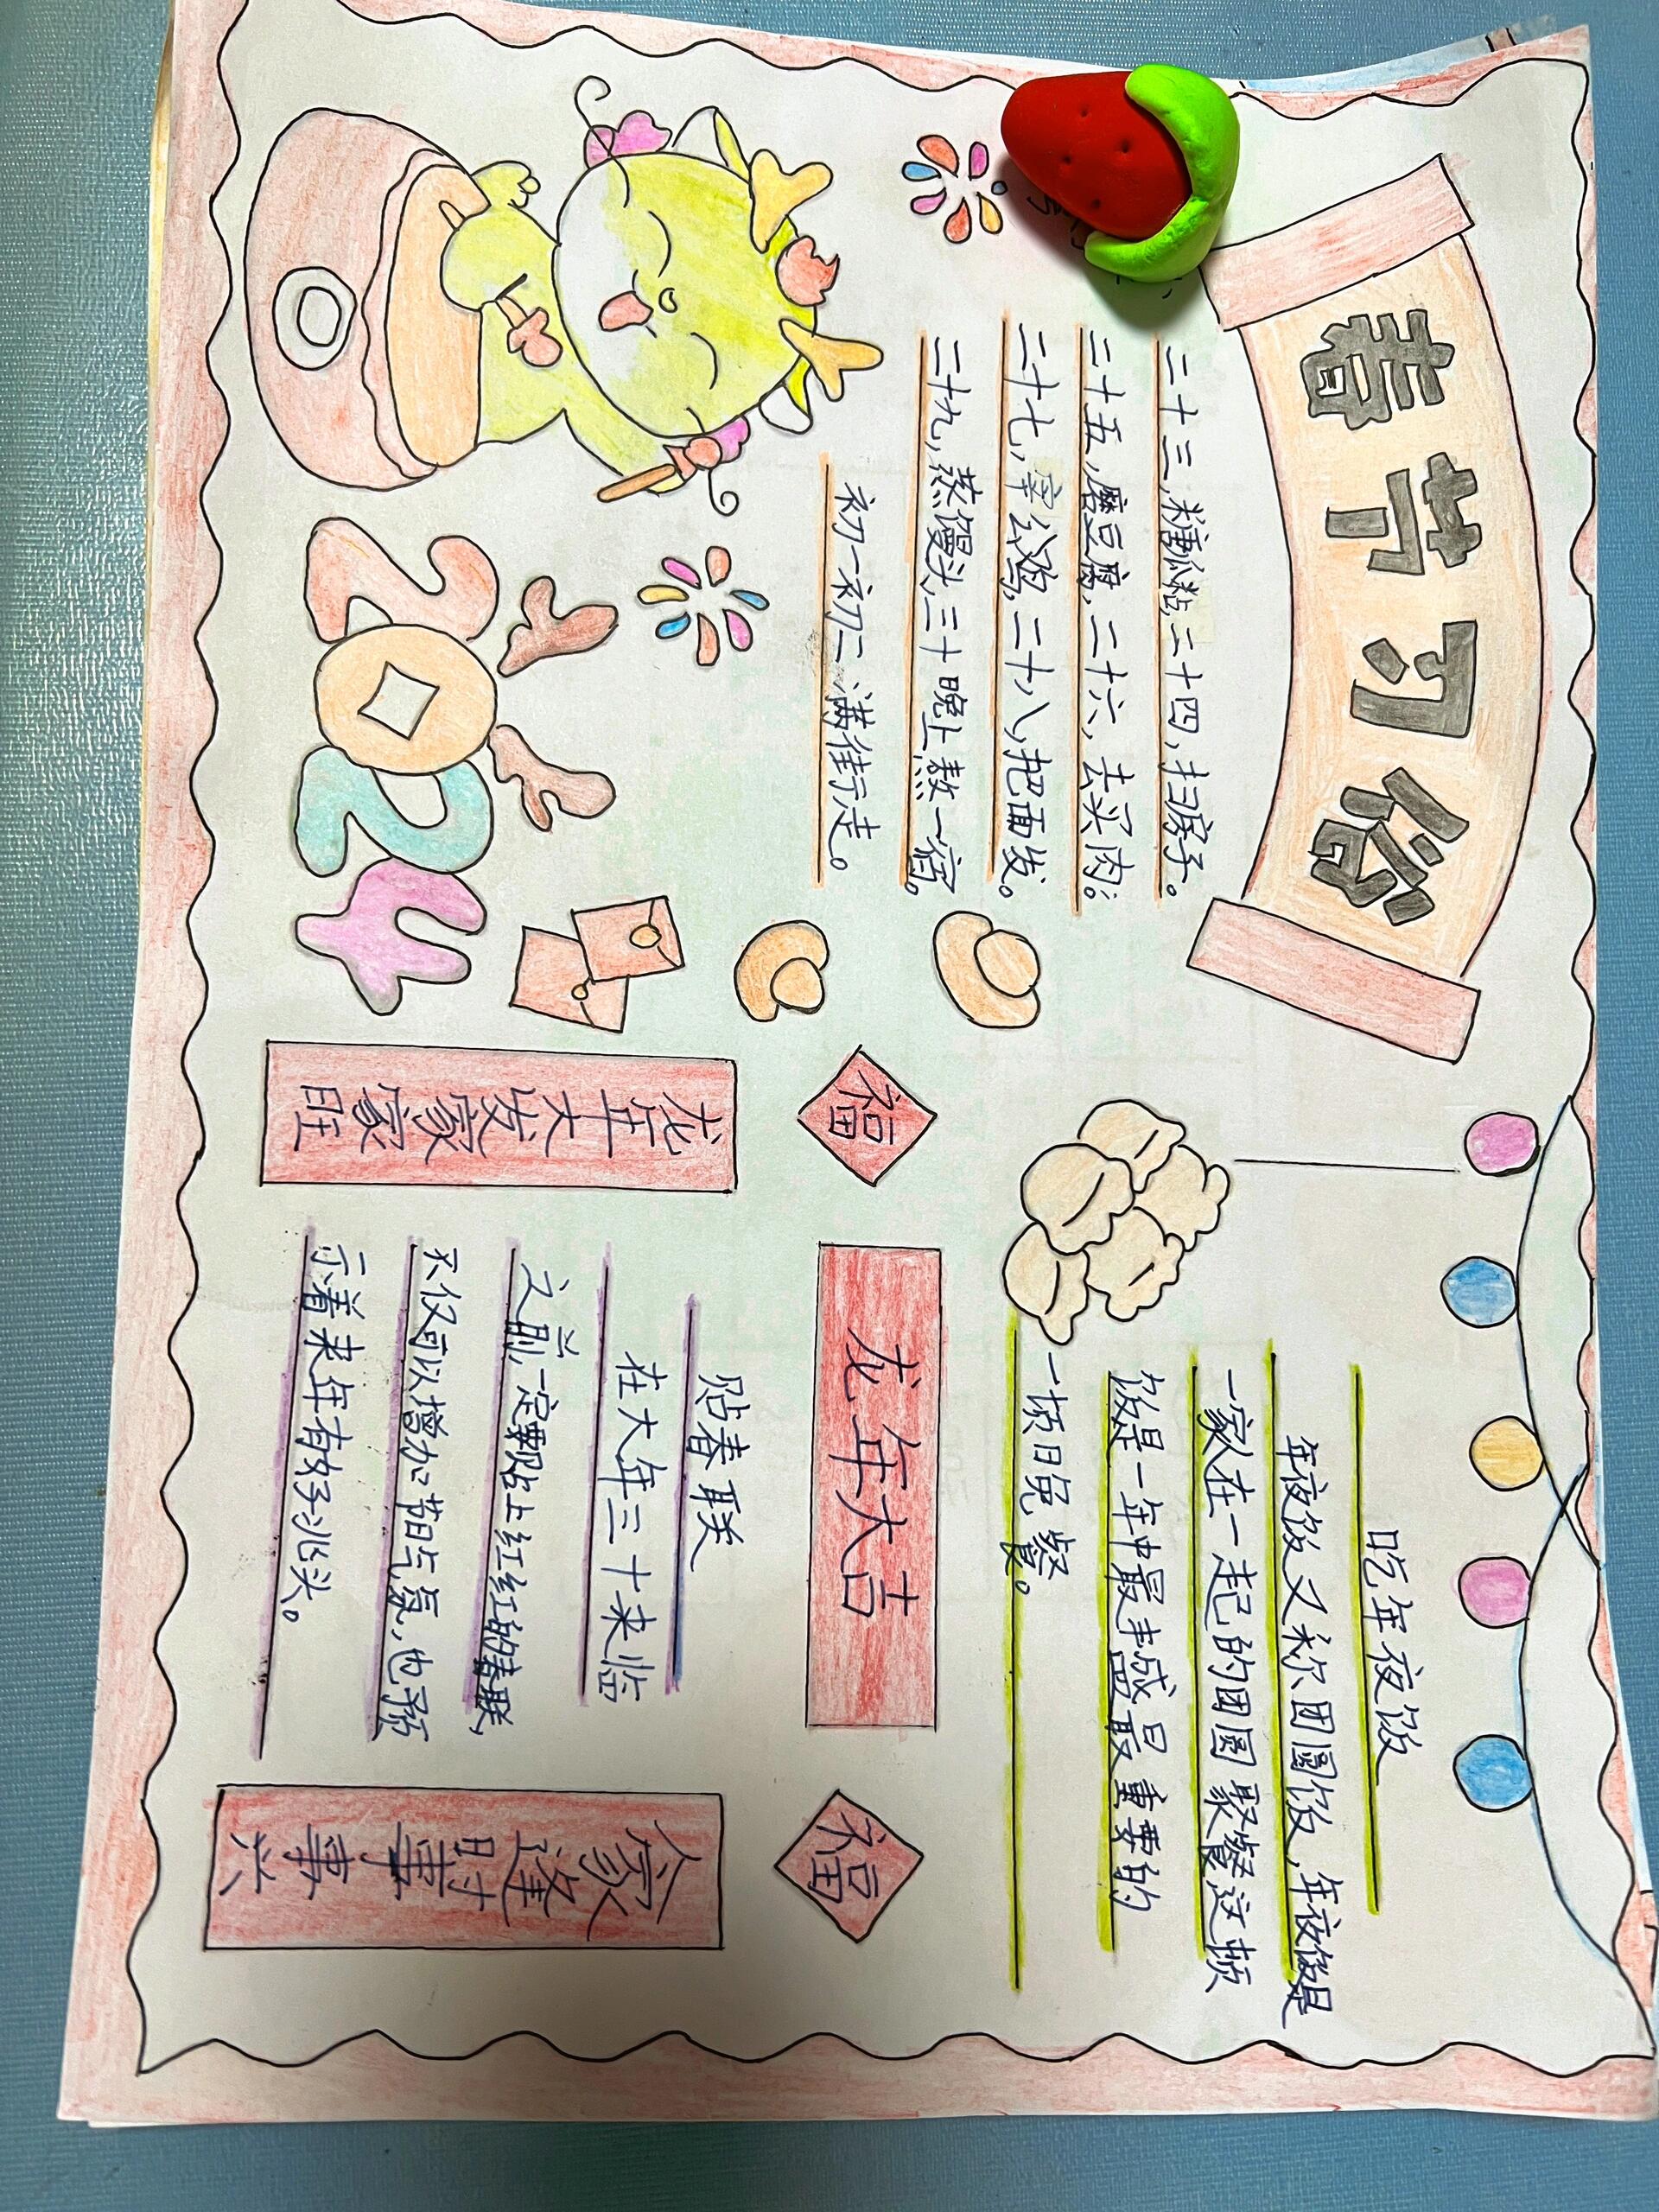 春节习俗
二十三,糖瓜粘,二十四,扫房子。
二十五,磨豆腐,二十六,去买肉。
二十七,宰公鸡,二十八,把面发。
二十九,蒸馒头,三十晚上熬一宿。
初一初二满街走。
2024
吃年夜饭
年夜饭又称团圆饭,年夜饭是
一家人在一起的团圆聚餐这顿
饭是一年中最丰盛最重要的
一顿晚餐。
福
龙年大吉
福
龙年大发家家旺
贴春联
在大年三十来临
之前,一定要贴上红红的春联,
不仅可以增加节日气氛,也预
示着来年有好兆头。
家逢时事事兴